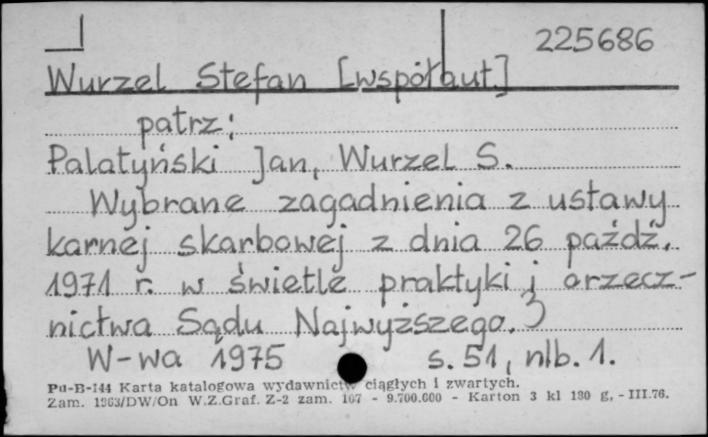 225686
Wurzel Stefan [współaut.]
patrz:
Palatyński Jan, Wurzel S.
Wybrane zagadnienia z ustawy
karnej skarbowej z dnia 26 paźdź.
1971 r. w świetle praktyki i orzecz-
nictwa Sądu Najwyższego.
W-wa 1975 s. 51, nlb. 1.
Pu-B-144 Karta katalogowa wydawnictw ciągłych i zwartych.
Zam. 1963/DW/On W.Z.Graf. Z-2 zam. 167 - 9.700.000 - Karton 3 kl 180 g. - III.76.